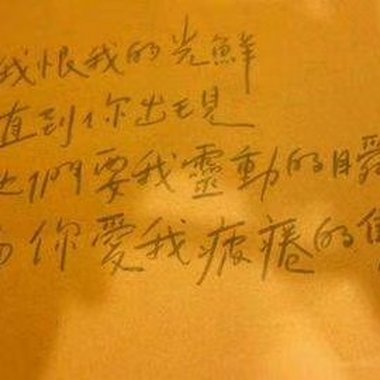 我恨我的光鮮
直到你出現
他們要我靈動的瞬
而你愛我疲倦的